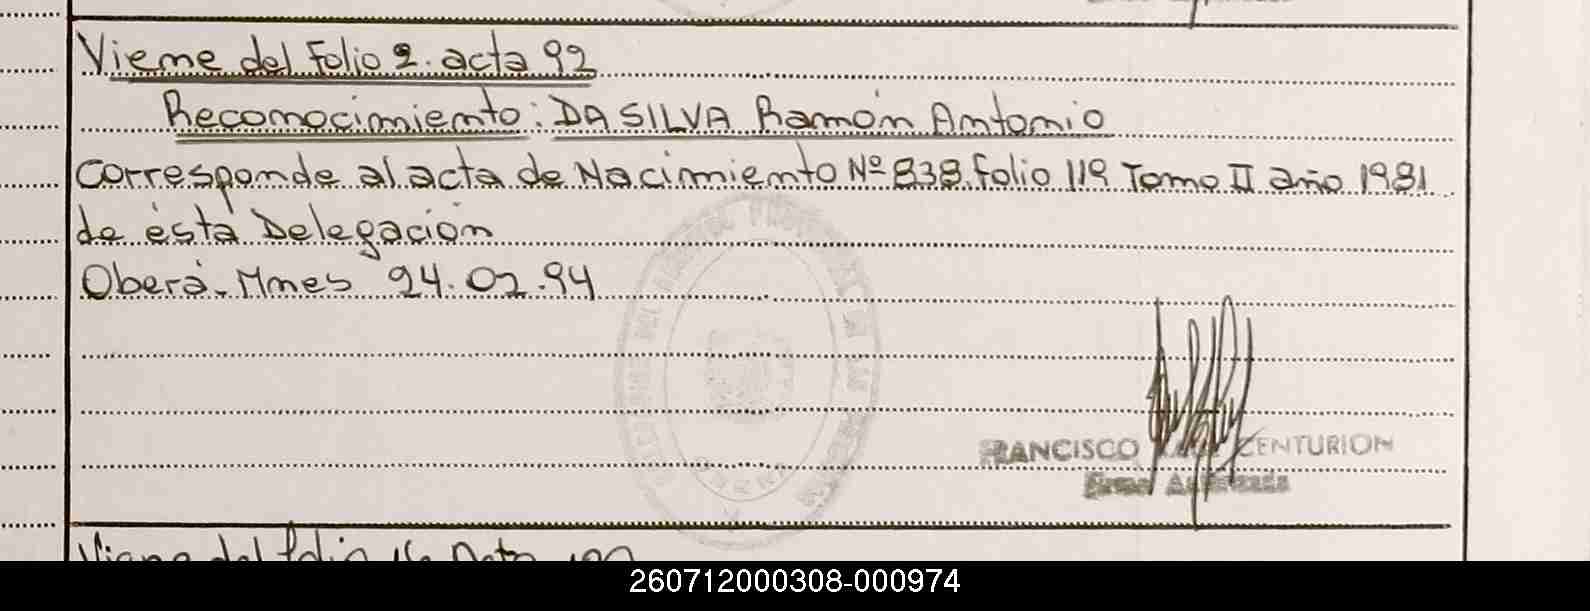 Viene del Folio 2. acta 92
Reconocimiento: DA SILVA Ramón Antonio
Corresponde al acta de Nacimiento Nº 838. folio 119 Tomo II año 1981
de ésta Delegación
Oberá. Mnes 24.02.94
FRANCISCO CENTURION
Firma Autorizada
Viene del folio
260712000308-000974